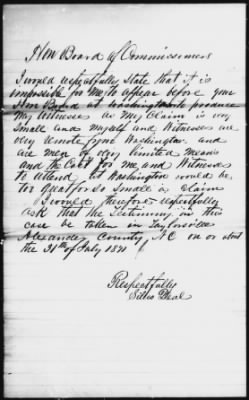 Hon Board of Commissioners
I would respectfully state that it is
impossible for me to appear before your
Hon Board at Washington to produce
my witnesses as my claim is very
small and myself and witnesses are
very remote from Washington and
are men of very limited means
and the cost for me and witnesses
to attend at Washington would be
too great for so small a claim
I would therefore respectfully
ask that the testimony in this
case be taken in Taylorsville
Alexander County, NC on or about
the 31st of July 1871
Respectfully
Silas Deal